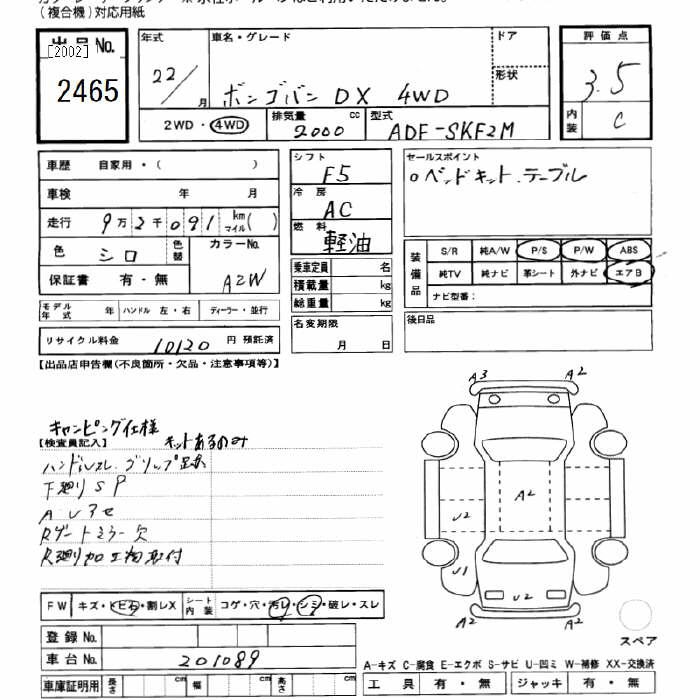 (複合機)対応用紙
出品No. 年式 車名・グレード ドア 評価点
[2002]
2465
22/ 月 ボンゴバン DX 4WD 形状 3.5
2WD・4WD 排気量 cc 2000 型式 ADF-SKF2M 内装 C
車歴 自家用・( ) シフト F5 セールスポイント
車検 年 月 冷房 AC 。ベッドキット.テーブル
走行 9万2千091 km マイル( ) 燃料 軽油
色 シロ 色替 カラーNo. A2W
装備品 S/R 純A/W P/S P/W ABS
純TV 純ナビ 革シート 外ナビ エアB
ナビ型番:
保証書 有・無 乗車定員 名
積載量 kg
総重量 kg
モデル年式 年 ハンドル 左・右 ディーラー・並行
リサイクル料金 10120 円 預託済 名変期限 月 日 後日品
【出品店申告欄(不良箇所・欠品・注意事項等)】
キャンピング仕様
キットあるのみ
【検査員記入】
ハンドルスレ.グリップ
下廻りSP
Rゲートミラー欠
R廻り加工物取付
A3 A2
A2
U2
U1 U2
A2
スペア
FW キズ・トビ石・割レX シート内装 コゲ・穴・汚レ・シミ・破レ・スレ
登録No.
車台No. 201089
車庫証明用 長さ cm 幅 cm 高さ cm
A-キズ C-腐食 E-エクボ S-サビ U-凹ミ W-補修 XX-交換済
工具 有・無 ジャッキ 有・無